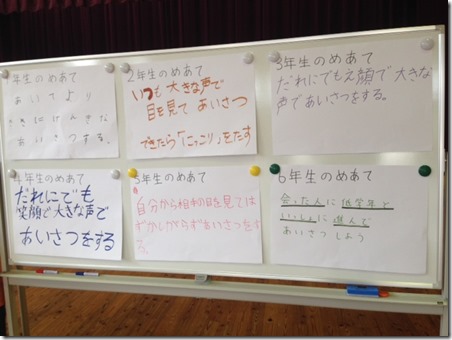 1年生のめあて
あいてより
さきにげんきな
あいさつする。
2年生のめあて
いつも大きな声で
目を見てあいさつ
できたら「にっこり」をたす
3年生のめあて
だれにでもえ顔で大きな
声であいさつをする。
4年生のめあて
だれにでも
笑顔で大きな声で
あいさつをする
5年生のめあて
自分から相手の目を見ては
ずかしがらずあいさつをす
る。
6年生のめあて
会った人に低学年と
いっしょに進んで
あいさつしよう